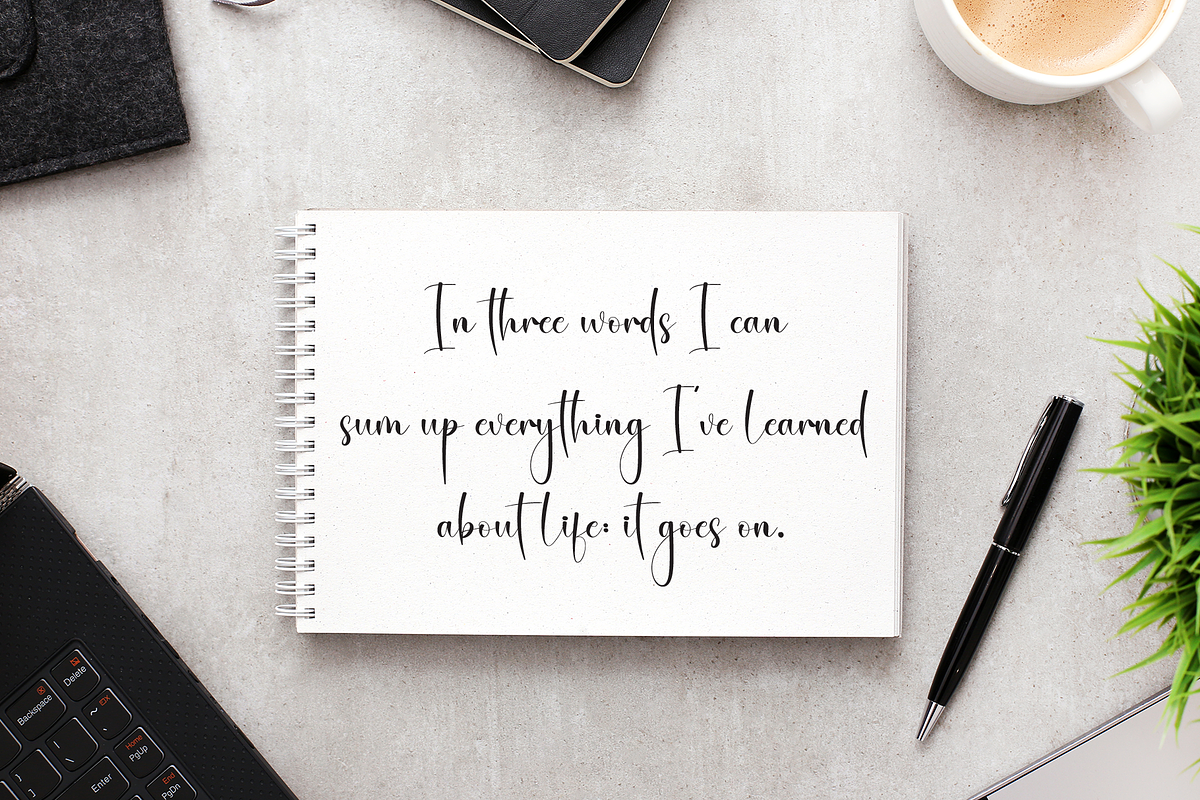 In three words I can
sum up everything I've learned
about life: it goes on.
Delete
Backspace
~
Fx
\
Home
PgUp
}
]
Enter
End
PgDn